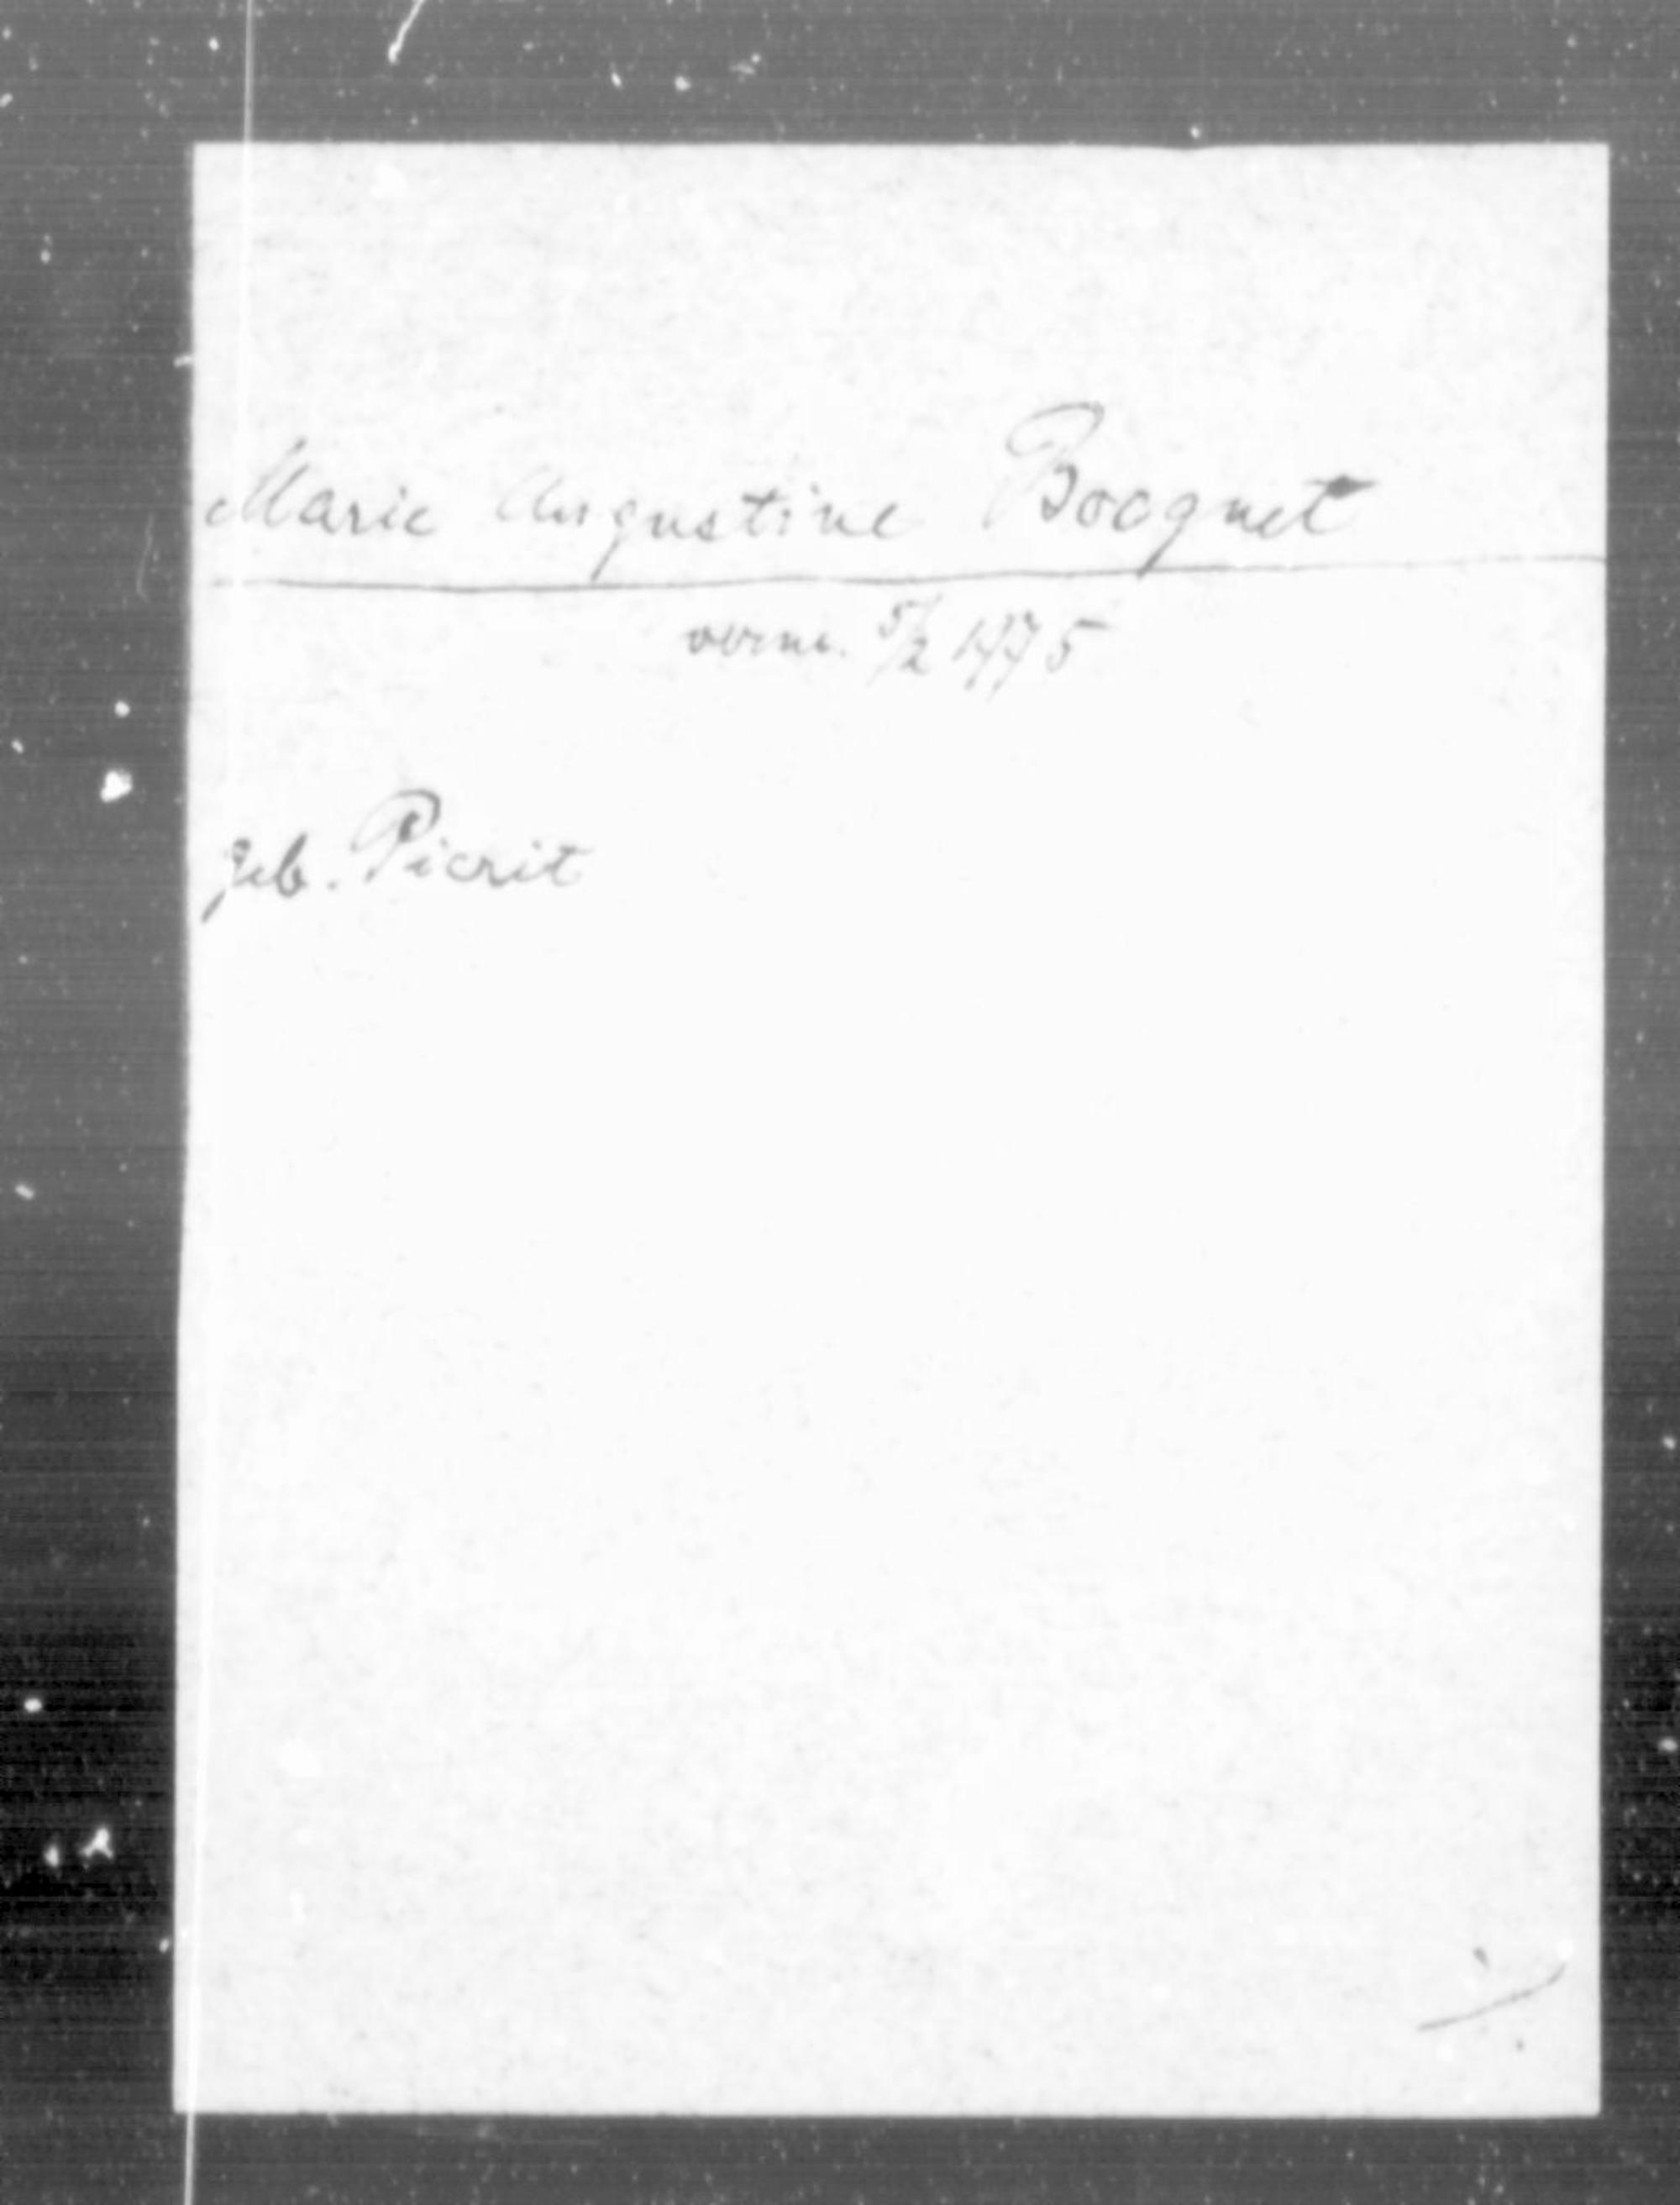 Marie Augustine Bocquet
verm. 5/2 1775
geb. Picrit